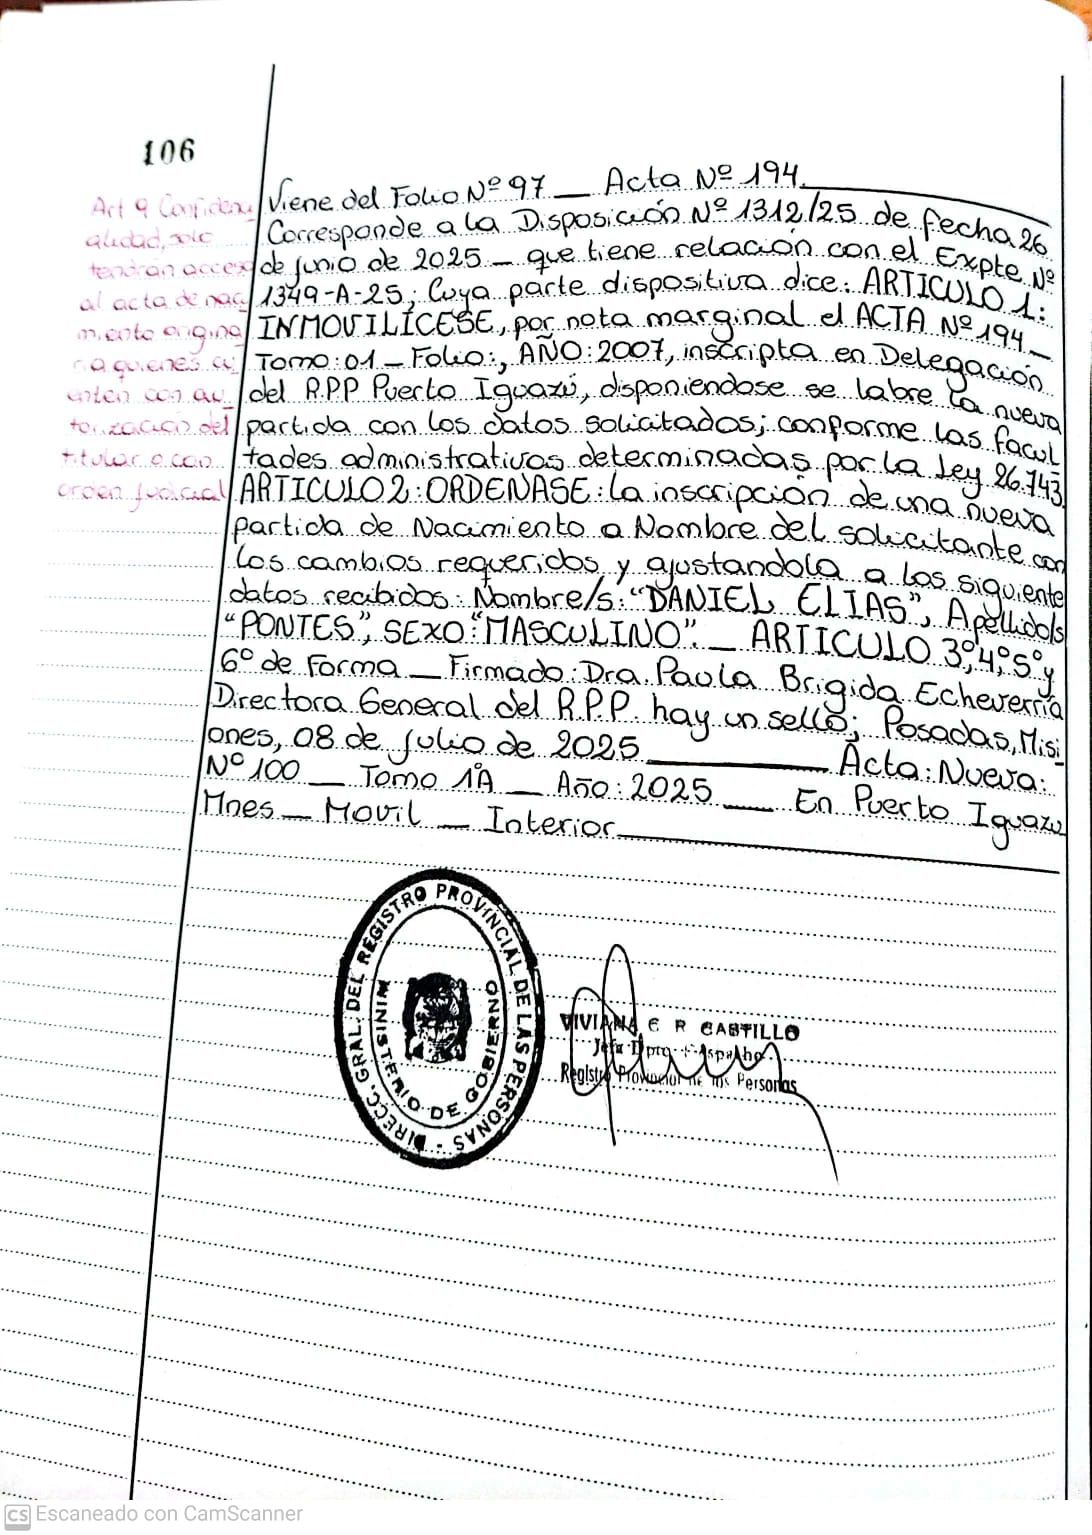 106
Art 9 Confidenci
alidad, solo
tendran acceso
al acta de naci
miento origina
ria quienes cu
enten con au_
torización del
titular o con
orden judicial
Viene del Folio Nº 97 __ Acta Nº 194.
Corresponde a la Disposición Nº 1312/25 de fecha 26
de junio de 2025 _ que tiene relación con el Expte. Nº
1349-A-25; Cuya parte dispositiva dice: ARTICULO 1:
INMOVILÍCESE, por nota marginal el ACTA Nº 194 _
Tomo: 01 _ Folio:, AÑO: 2007, inscripta en Delegación
del R.P.P Puerto Iguazú, disponiendose se labre la nueva
partida con los datos solicitados; conforme las facul
tades administrativas determinadas por la Ley 26.743
ARTICULO 2: ORDENASE: La inscripción de una nueva
partida de Nacimiento a Nombre del solicitante con
los cambios requeridos y ajustandola a los siguiente
datos recibidos: Nombre/s: "DANIEL ELIAS", Apellido/s
"PONTES", SEXO: "MASCULINO". _ ARTICULO 3º, 4º, 5º y
6º de Forma _ Firmado: Dra. Paula Brigida Echeverría
Directora General del R.P.P. hay un sello; Posadas, Misi
ones, 08 de julio de 2025 ______ Acta: Nueva:
Nº 100 __ Tomo 1ºA _ Año: 2025 __ En Puerto Iguazu
Mnes _ Movil _ Interior
DIRECC. GRAL. DEL REGISTRO PROVINCIAL DE LAS PERSONAS -
MINISTERIO DE GOBIERNO
VIVIANA E R CASTILLO
Jefa Dpto. Despacho
Registro Provincial de las Personas
CS Escaneado con CamScanner